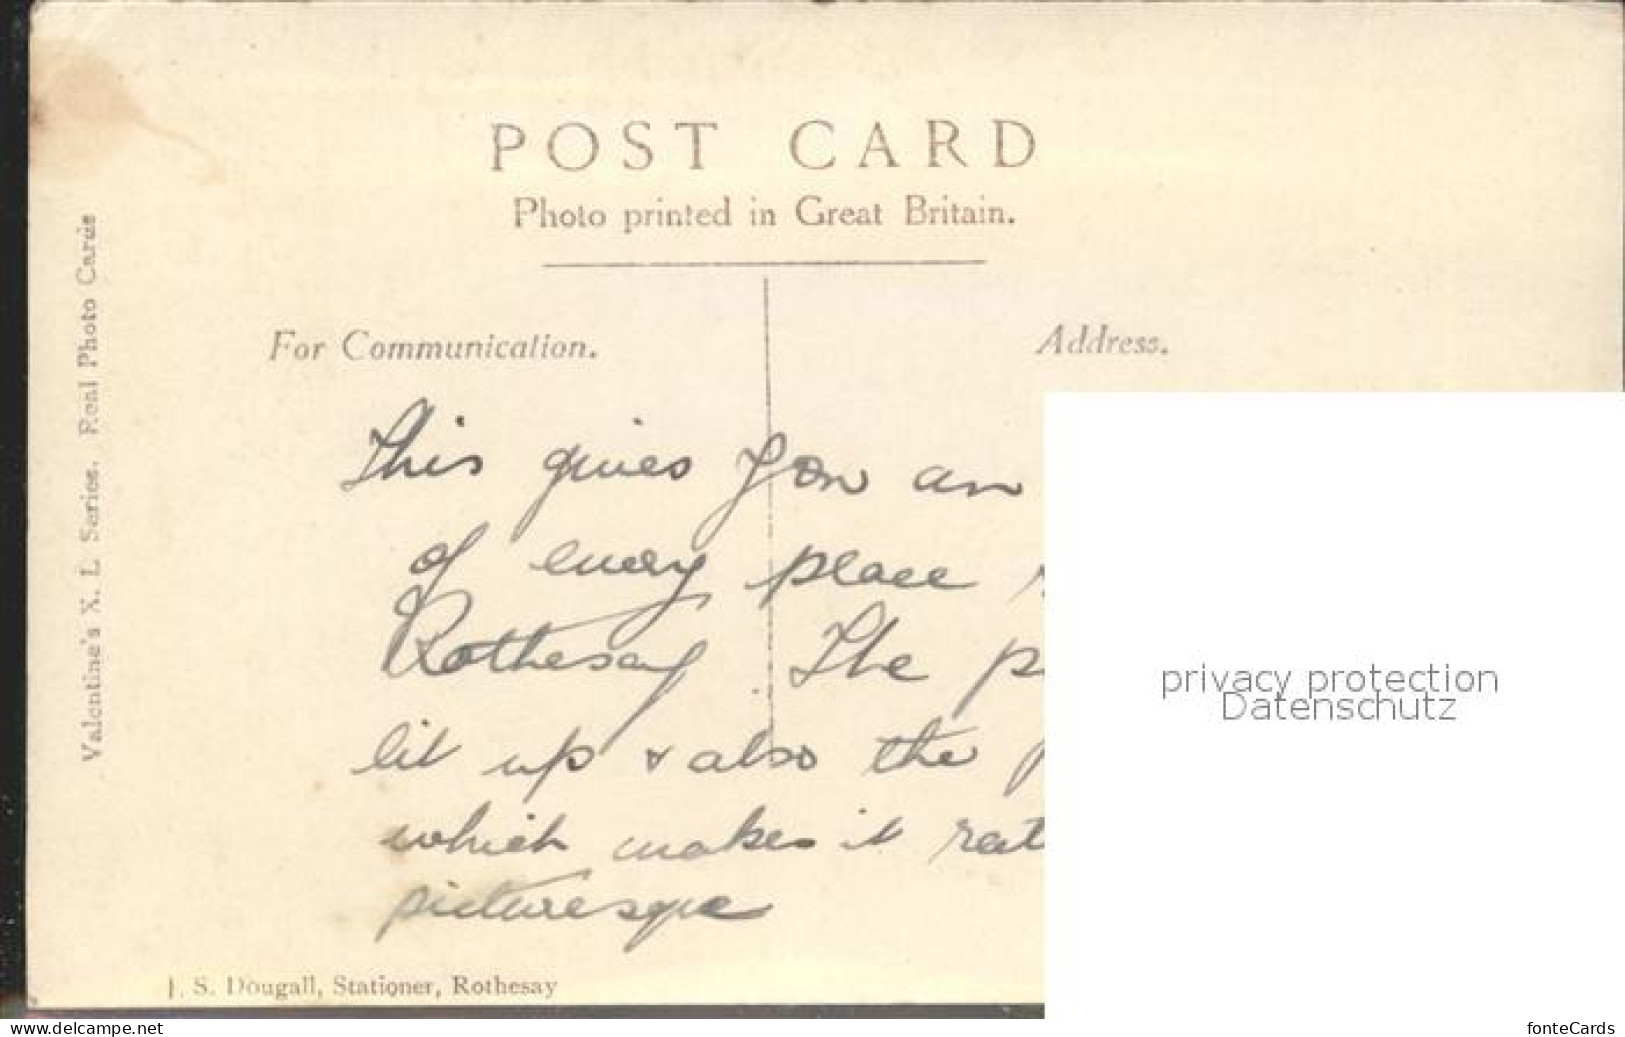 POST CARD
Photo printed in Great Britain.
For Communication.
Address.
This gives you an
of every place
Rothesay. The p
lit up & also the
which makes it rat
picturesque
J. S. Dougall, Stationer, Rothesay
Valentine's X. L Series. Real Photo Cards
privacy protection
Datenschutz
www.delcampe.net
fonteCards